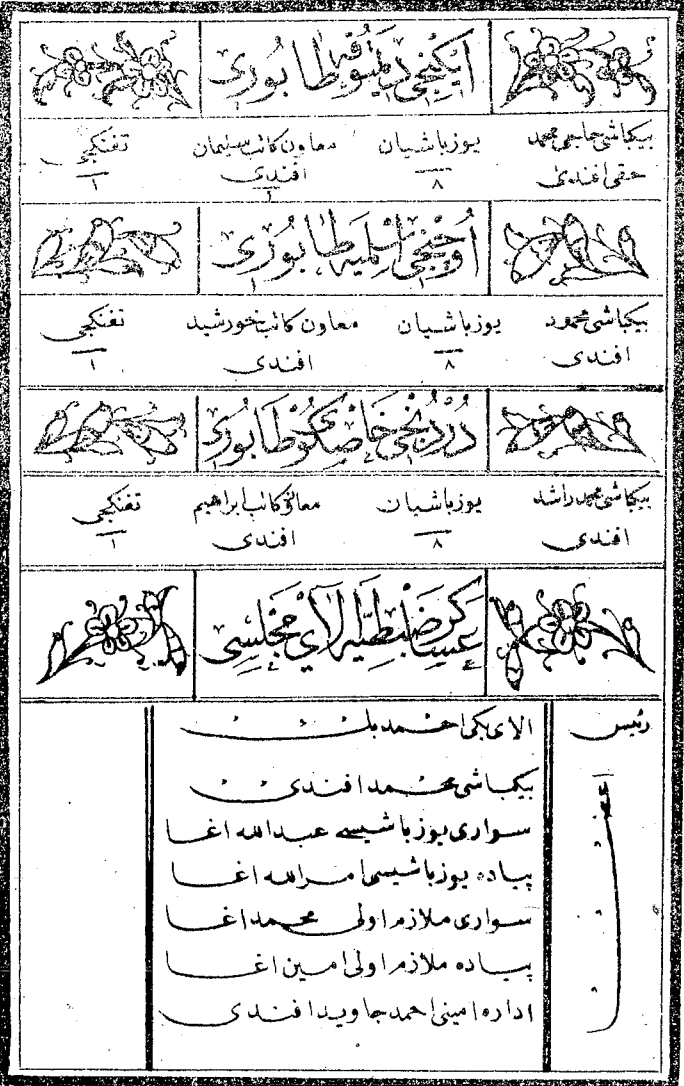 ایكنجی دیمتوقه طابوری
بیكباشی چلبی محمد یوزباشیان معاون كاتب سلیمان تفنكجی
حقی افندی ٨ افندی ١
١
اوچنجی اسلمیه طابوری
بیكباشی محمود یوزباشیان معاون كاتب خورشید تفنكجی
افندی ٨ افندی ١
دردنجی خاصكوی طابوری
بیكباشی محمد راشد یوزباشیان معاون كاتب ابراهیم تفنكجی
افندی ٨ افندی ١
عساكر ضبطیه آلای مجلسی
رئیس الای بكی احمد بك
اعضا بیكباشی محمد افندی
سواری یوزباشیسی عبدالله اغا
پیاده یوزباشیسی امرالله اغا
سواری ملازم اولی محمد اغا
پیاده ملازم اولی امین اغا
اداره امینی احمد جاوید افندی